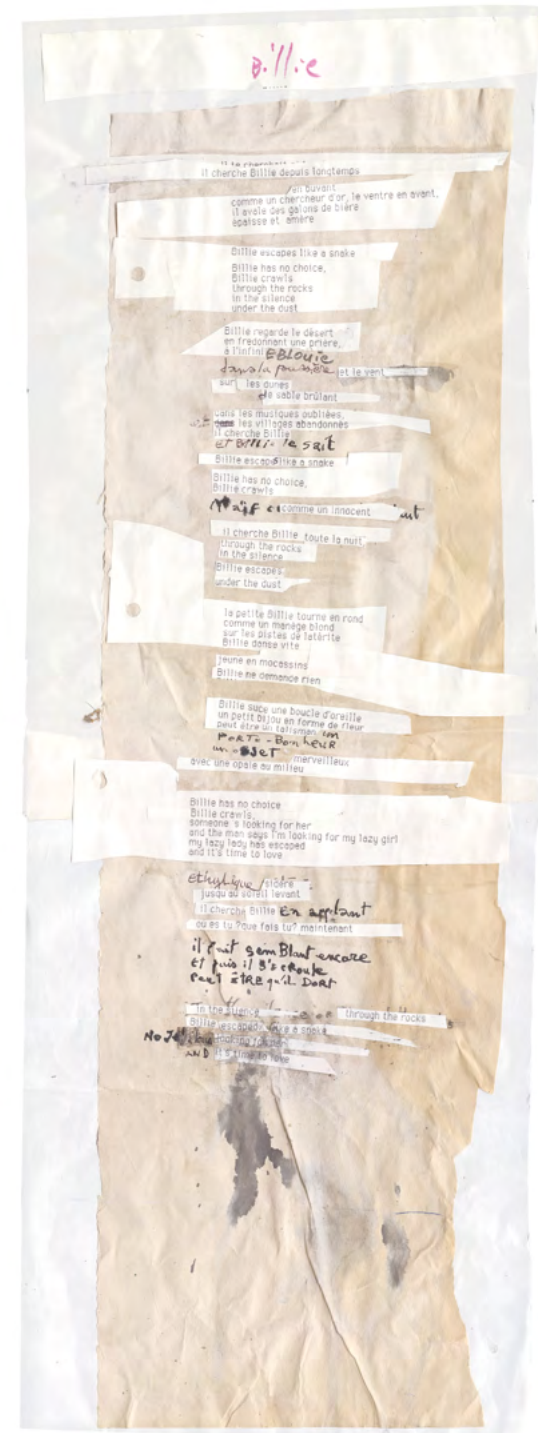 Billie
il cherche Billie depuis longtemps
en buvant
comme un chercheur d'or, le ventre en avant,
il avale des galons de bière
épaisse et amère
Billie escapes like a snake
Billie has no choice,
Billie crawls
through the rocks
in the silence
under the dust
Billie regarde le désert
en fredonnant une prière,
à l'infini EBLOUIE
dans la poussière et le vent
sur les dunes
de sable brûlant
dans les musiques oubliées,
les villages abandonnés
il cherche Billie
ET Billie le sait
Billie escapes like a snake
Billie has no choice,
Billie crawls
Naïf comme un innocent
il cherche Billie toute la nuit
through the rocks
in the silence
Billie escapes
under the dust
la petite Billie tourne en rond
comme un manège blond
sur les pistes de latérite
Billie danse vite
jeune en mocassins
Billie ne demande rien
Billie suce une boucle d'oreille
un petit bijou en forme de fleur
peut être un talisman un
PORTE-BonHEUR
un OBJET merveilleux
avec une opale au milieu
Billie has no choice
Billie crawls,
someone's looking for her
and the man says I'm looking for my lazy girl
my lazy lady has escaped
and it's time to love
EthyLique / sidéré
jusqu'au soleil levant
il cherche Billie En appelant
où es tu ?que fais tu? maintenant
il fait semBlant encore
ET puis il s'écRoule
PEUT ÊTRE qu'il DORT
in the silence through the rocks
Billie escaped like a snake
looking for
AND it's time to love